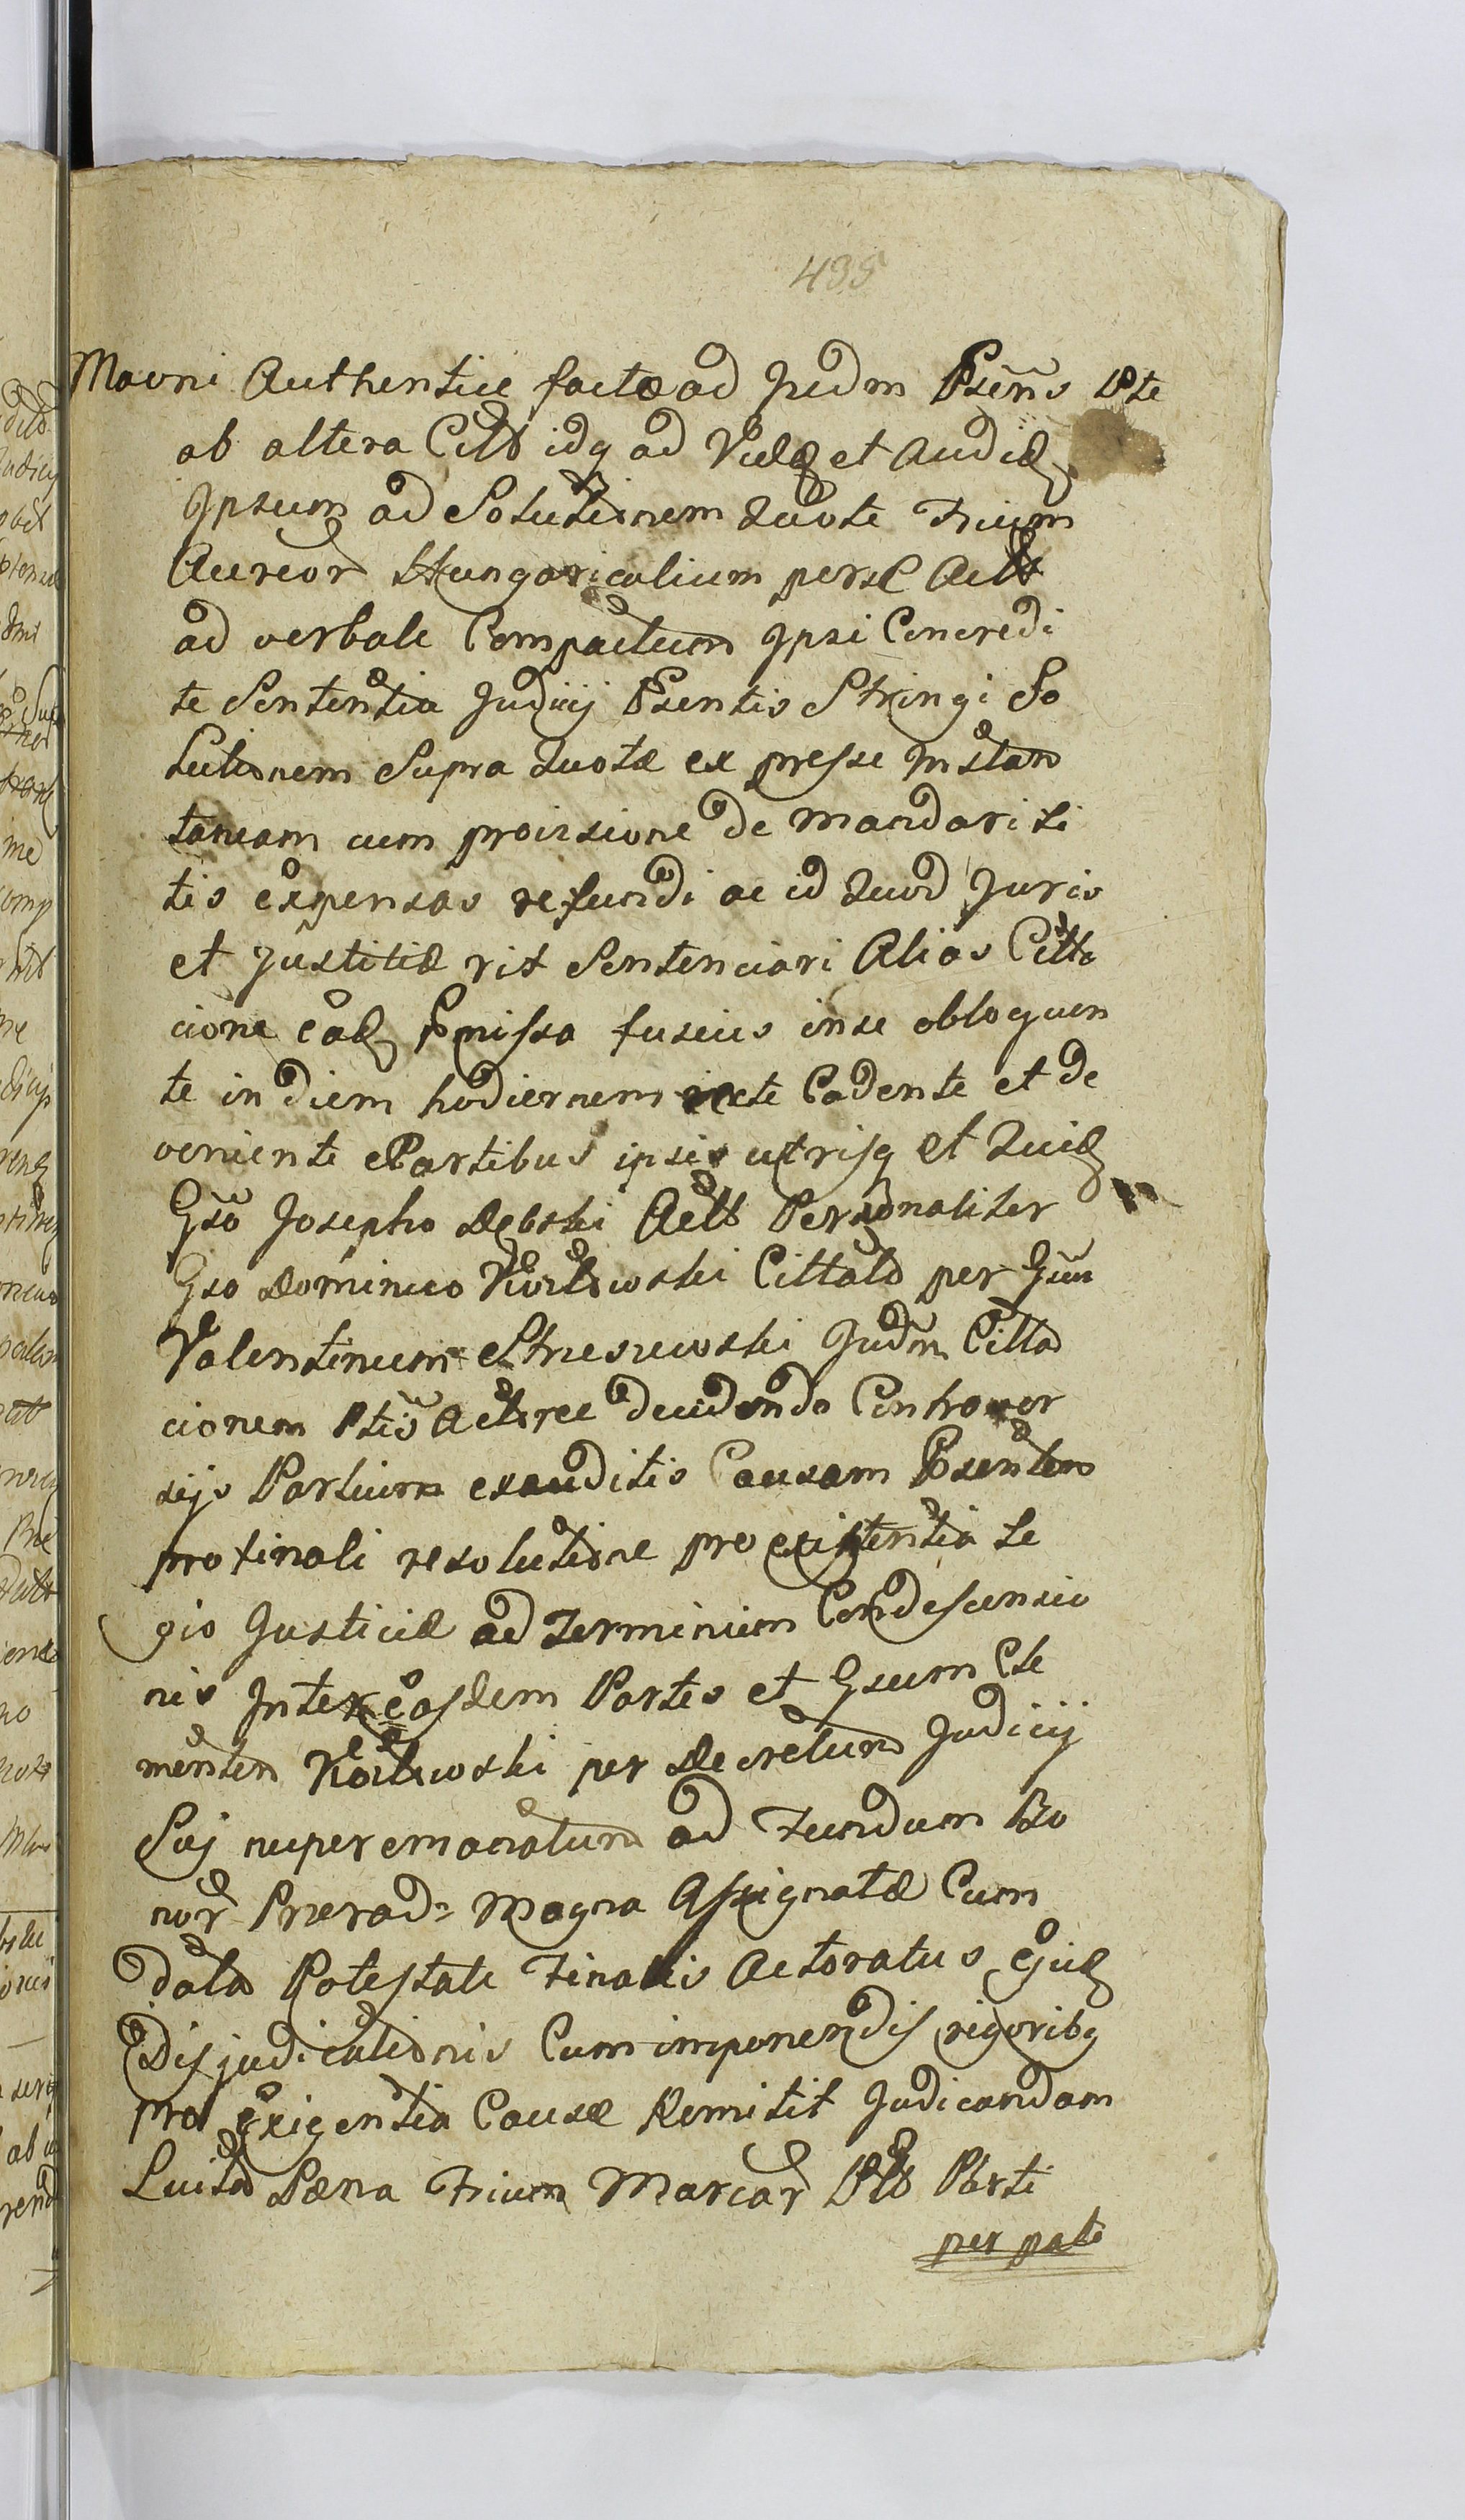 435
Movni Authentice factæ ad Judm Psens Pte
ab altera Citt idq ad Vidq et Audiq
Ipsum ad Solutionem quote Trium
Aureor Hungaricalium per se Actt
ad verbale Compactum Ipsi Concredi
te Sententia Judicij Psentis Stringi So
lutionem Supra quotæ ex presse Instan
taneam cum provisione de mandari li
tis expensas refundi ac id quod Juris
et Justitiæ rit Sentenciari Alias Citta
cione eadq Pmissa fusius in se obloquen
te in diem hodiernem recte Cadente et de
veniente Partibus ipsis utrisq et quidq
Gso Josepho Dębski Actt Personaliter
Gso Dominico Kozłowski Cittato per Gum
Valentinum Judm Citta
cionem Ptis Actoree decidendo Controver
sijs Partium exauditis Causam Psentem
pro finali resolutione pro existentia Le
gis Justiciæ ad Terminum Condescensio
nis Inter easdem Partes et Gsum Cle
mentem Kozłowski per Decretum Judicij
Sui nuper emanatum ad Fundum Bo
nor Magna Assignatæ Cum
data Potestate Finalis Actoratus Ejudq
Disjudicationis Cum imponendis rigoribq
pro Exigentia Causæ Remitit Judicandam
Luita Pæna Trium Marcar Ptt Parti
per pate